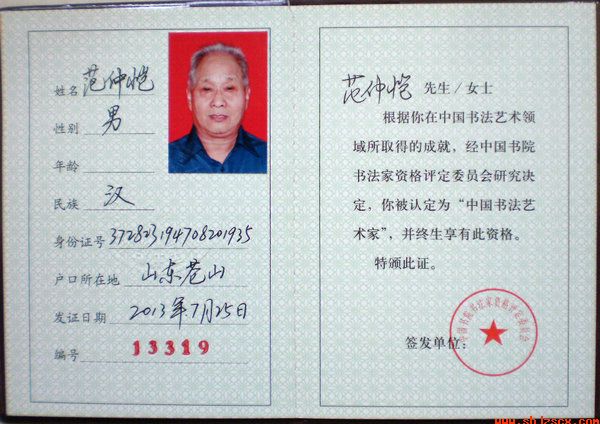 姓名 范仲恺
性别 男
年龄
民族 汉
身份证号 372823194708201935
户口所在地 山东苍山
发证日期 2013年7月25日
编号 13319
范仲恺 先生/女士
根据你在中国书法艺术领
域所取得的成就，经中国书院
书法家资格评定委员会研究决
定，你被认定为“中国书法艺
术家”，并终生享有此资格。
特颁此证。
签发单位：
中国书院书法家资格评定委员会